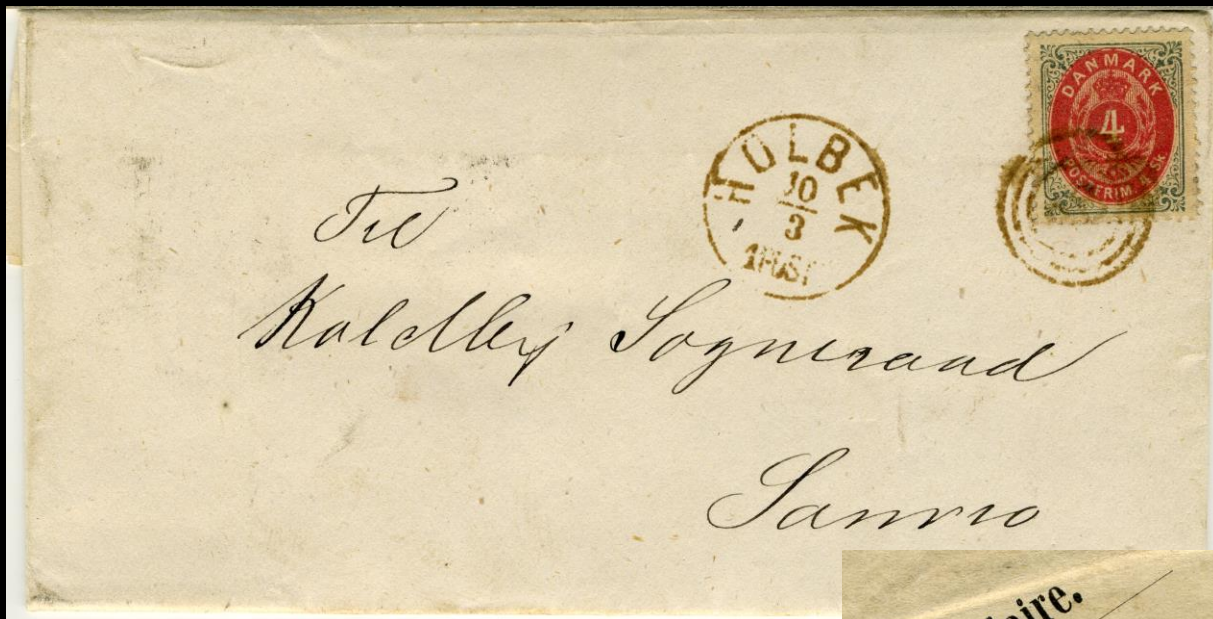 DANMARK
4
POSTFRIM. 4 Sk
HOLBEK
10
3
1POST
Til
Koldby Sogneraad
Samsø
oire.